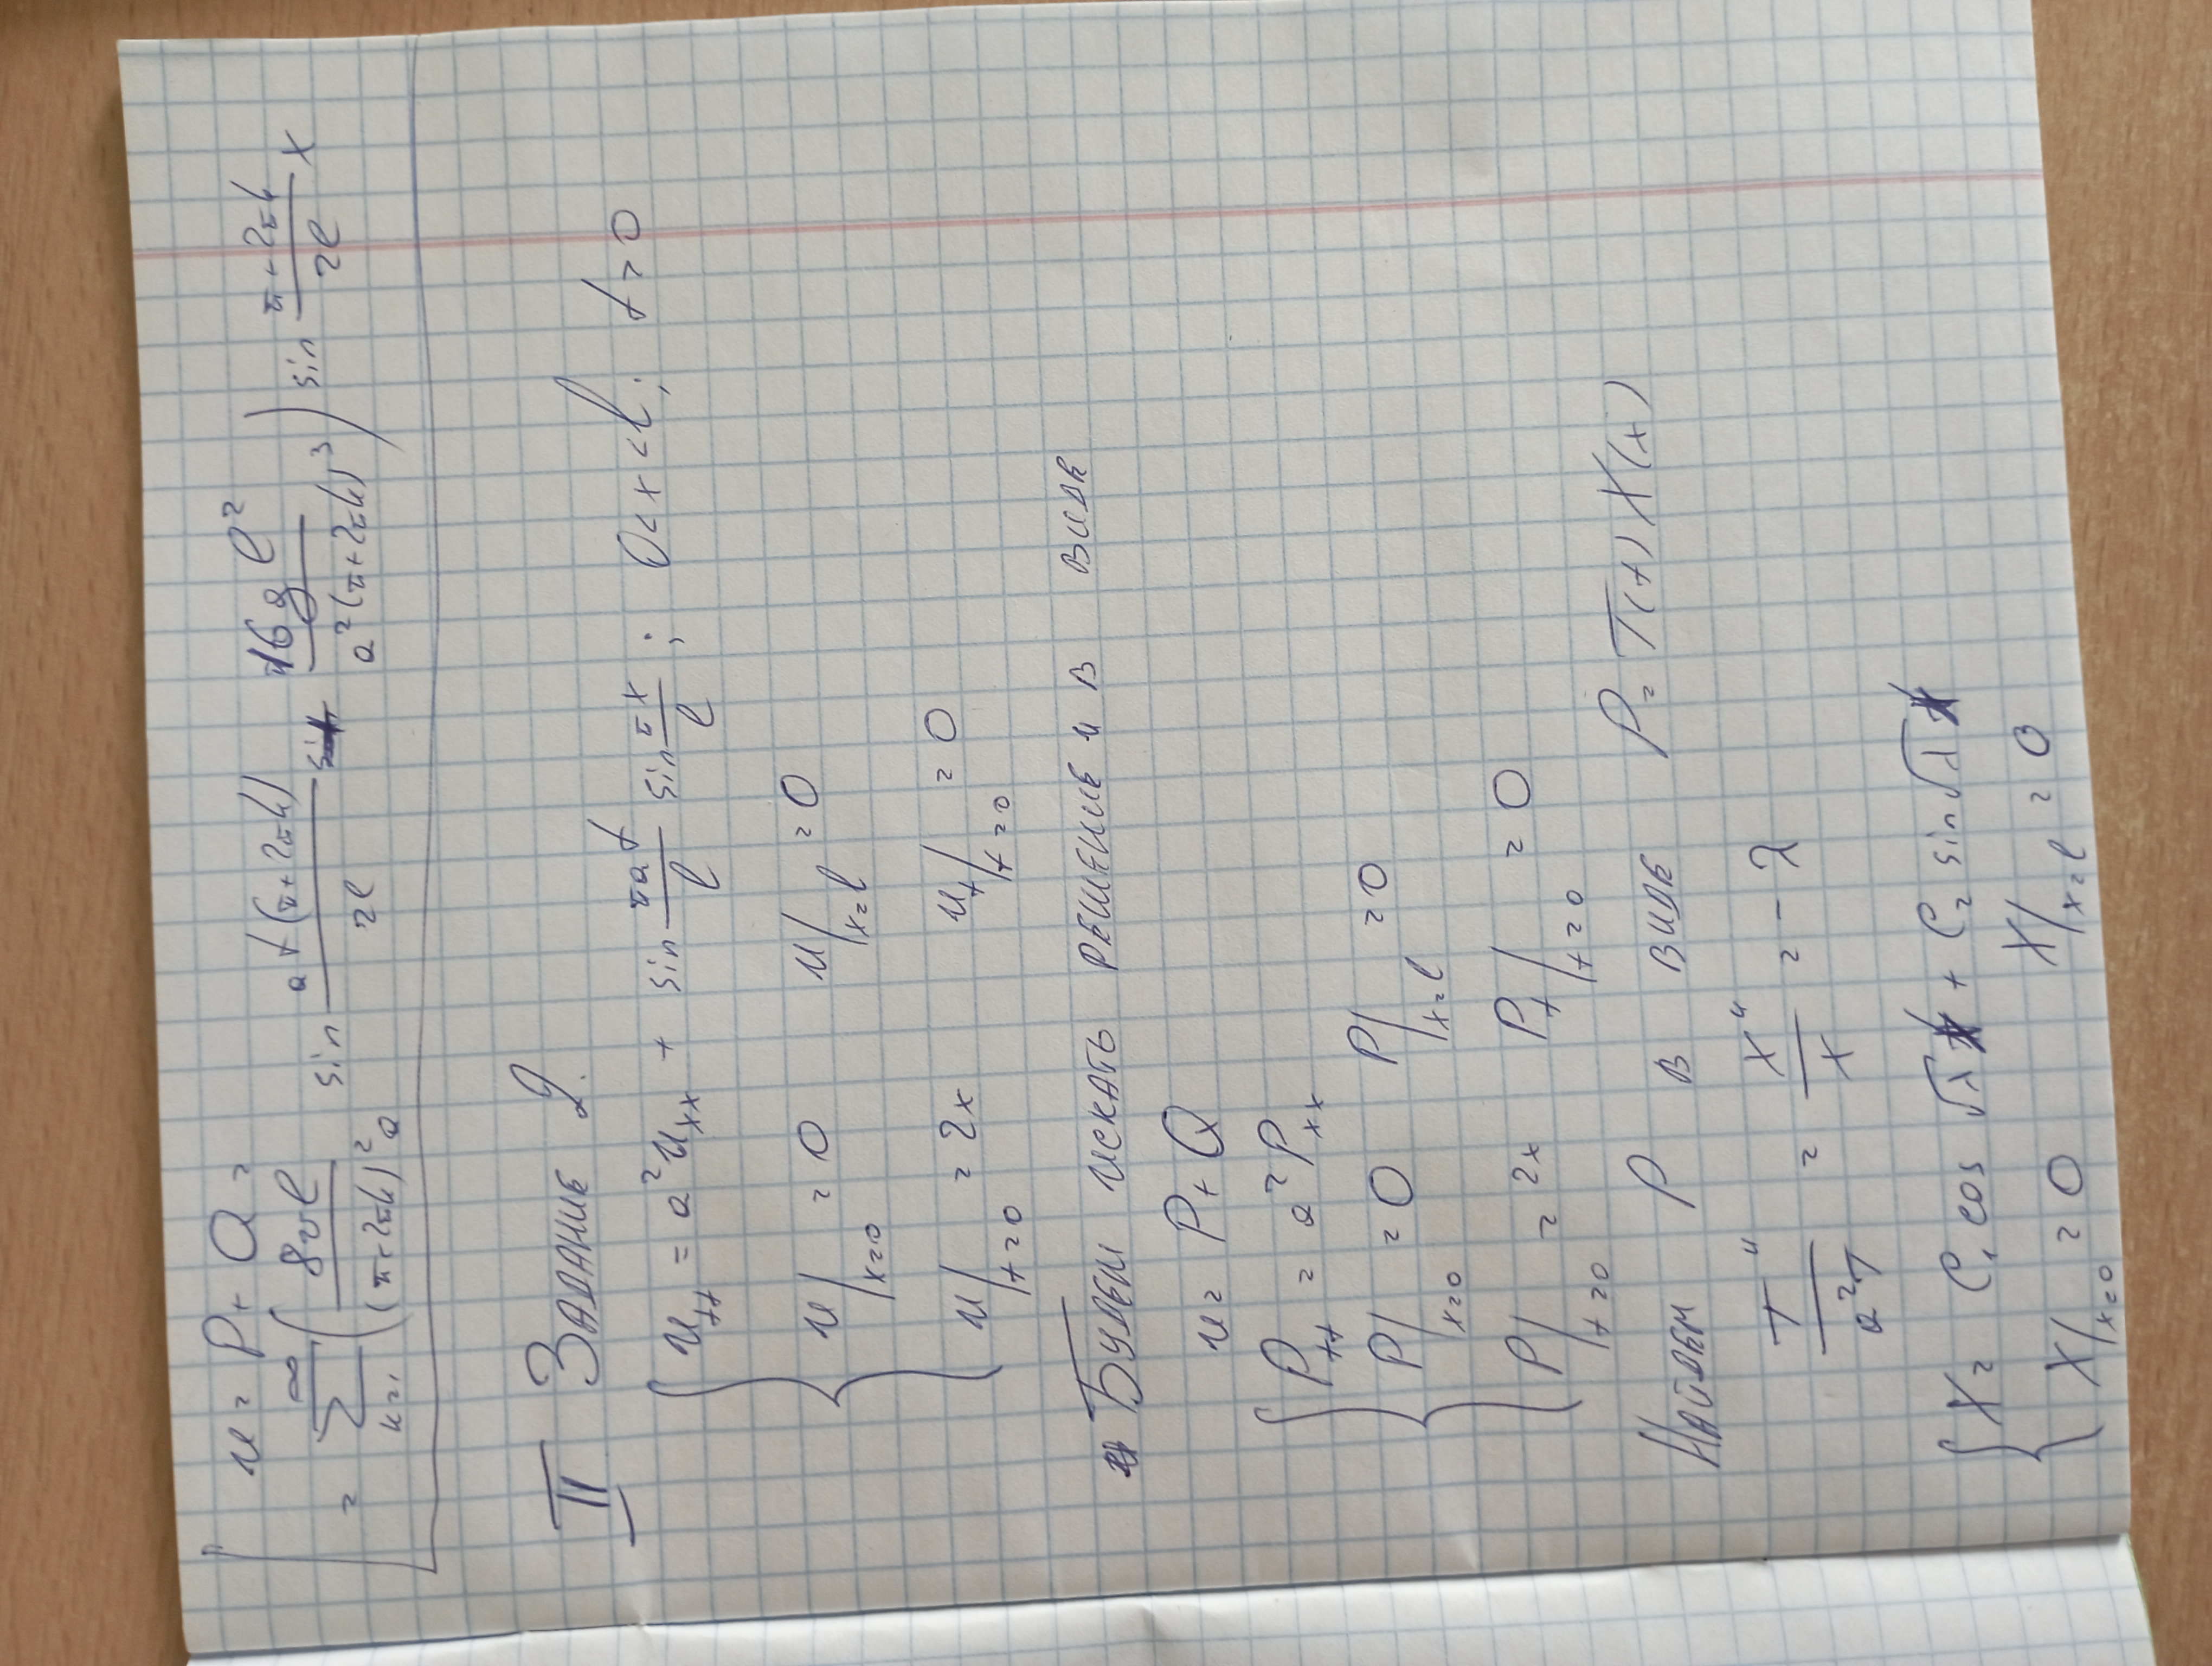 u = P + Q =
= ∑_{k=1}^{∞} ( 8vl / (π+2πk)² a sin at(π+2πk) / 2l 16 g l² / a²(π+2πk)³ ) sin π+2πk / 2l x
II Задание 2.
u_tt = a² u_xx + sin πat / l sin πx / l ; 0 < x < l ; t > 0
u|_{x=0} = 0 u|_{x=l} = 0
u|_{t=0} = 2x u_t|_{t=0} = 0
Будем искать решение u в виде
u = P + Q
P_tt = a² P_xx
P|_{x=0} = 0 P|_{x=l} = 0
P|_{t=0} = 2x P_t|_{t=0} = 0
Найдем P в виде P = T(t) X(x)
T'' / a²T = X'' / X = - λ
X = C₁ cos √λ x + C₂ sin √λ x
X|_{x=0} = 0 X|_{x=l} = 0